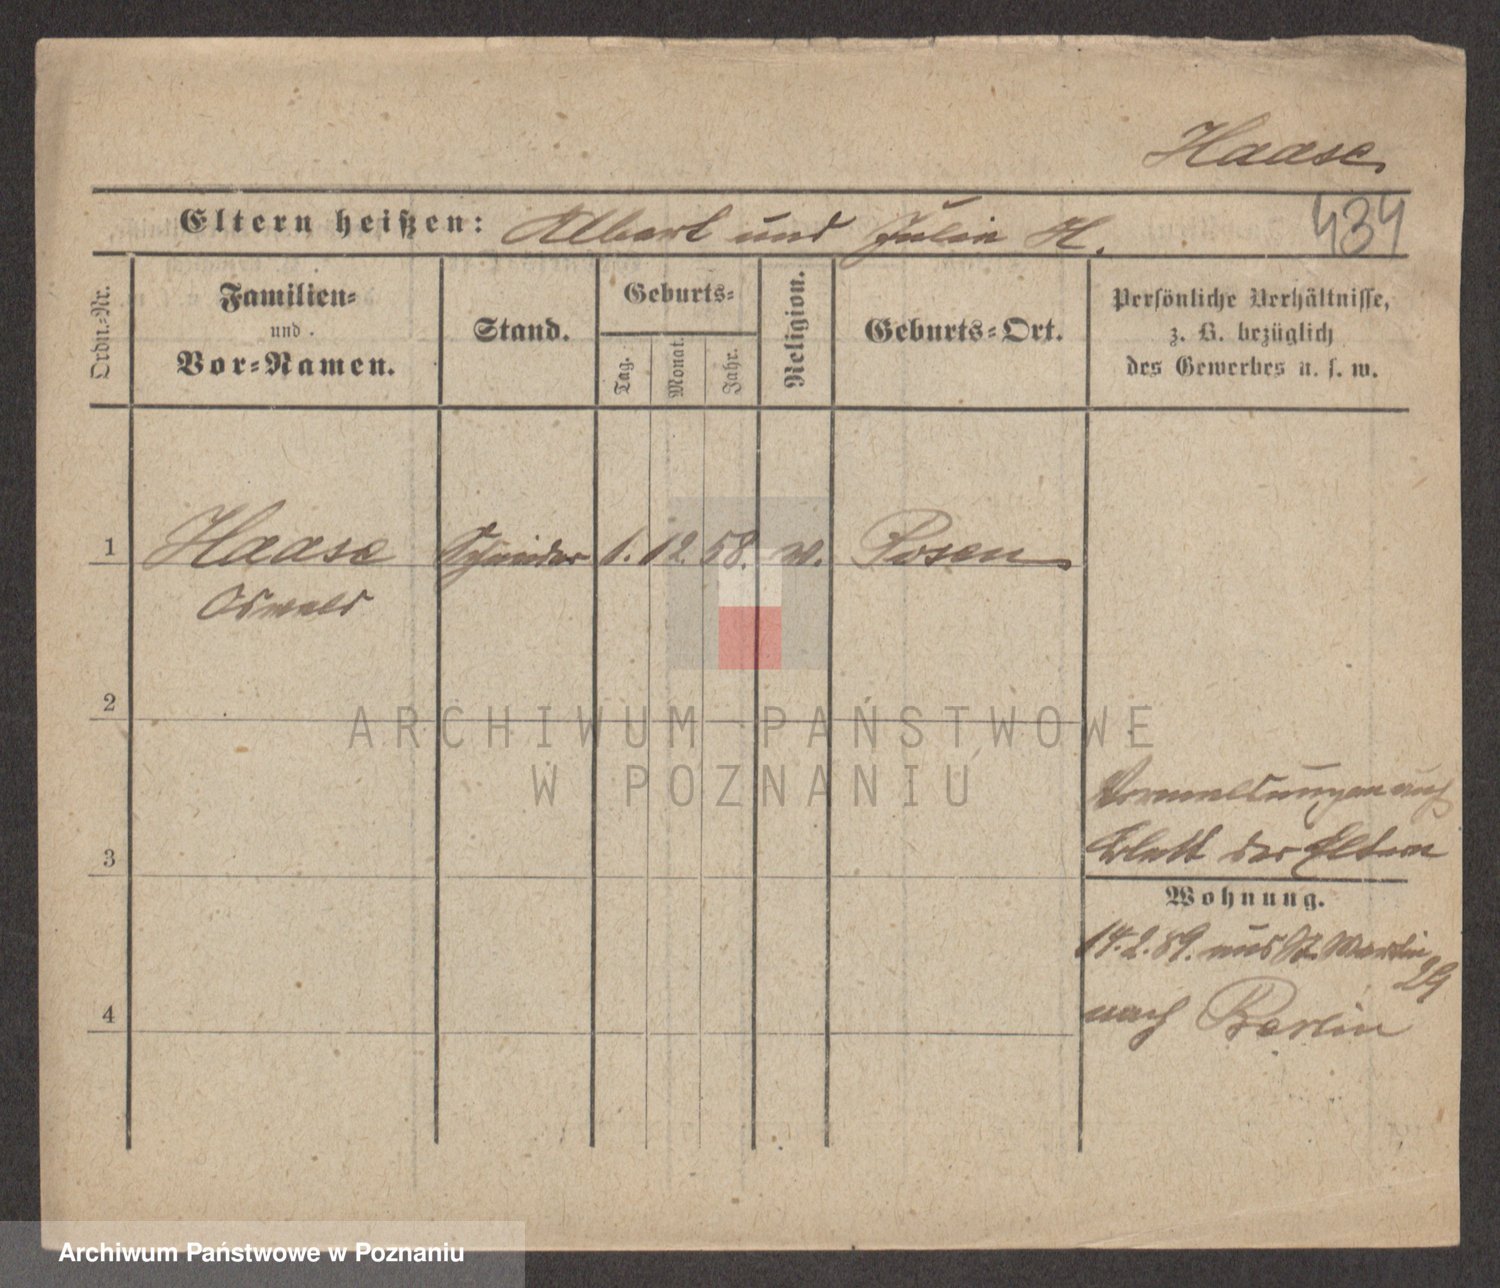 Haase
434
Eltern heißen: Albert und Julie H.
Ordn.-Nr.
Familien-
und
Vor-Namen.
Stand.
Geburts-
Tag.
Monat.
Jahr.
Religion.
Geburts-Ort.
Persönliche Verhältnisse,
z. B. bezüglich
des Gewerbes u. s. w.
1 Haase Schneider 1. 12. 58. Posen
Oswald
2
ARCHIWUM PAŃSTWOWE
W POZNANIU
auf
3 Blatt der Eltern
Wohnung.
14.2.89. aus St. Martin
29
4 nach Berlin
Archiwum Państwowe w Poznaniu